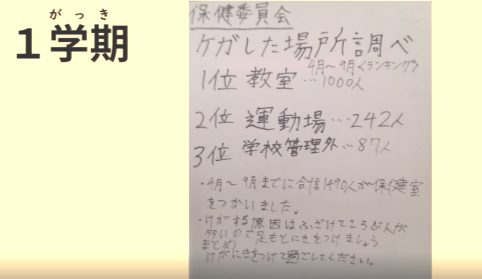 がっき
1学期
保健委員会
ケガした場所調べ
4月～9月〈ランキング〉
1位 教室…1000人
2位 運動場…242人
3位 学校管理外…87人
・4月～9月までに合計1490人が保健室
をつかいました。
・けがする原因はふざけてころぶ人が
多いので足もとにきをつけましょう
まとめ
けがにきをつけて過ごしてください。